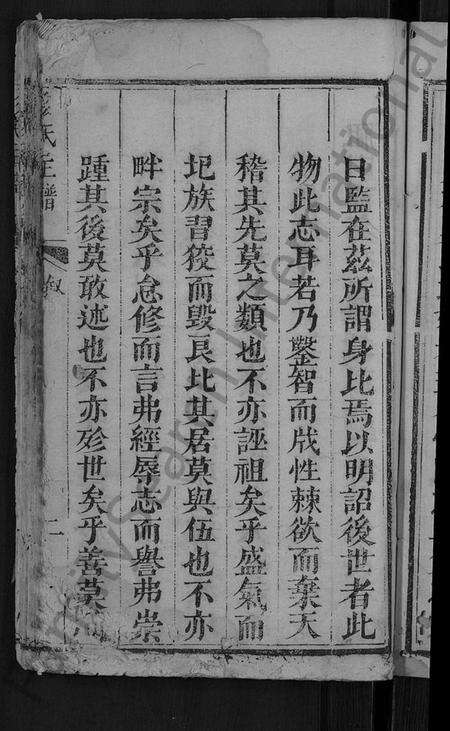 日監在茲所謂身比焉以明詔後世者此
物此志耳若乃鑿智而戕性棘欲而棄天
稽其先莫之類也不亦誣祖矣乎盛氣而
圯族習狡而毀良比其居莫與伍也不亦
畔宗矣乎怠修而言弗經辱志而譽弗崇
踵其後莫敢述也不亦殄世矣乎善莫
氏主譜
叙
二